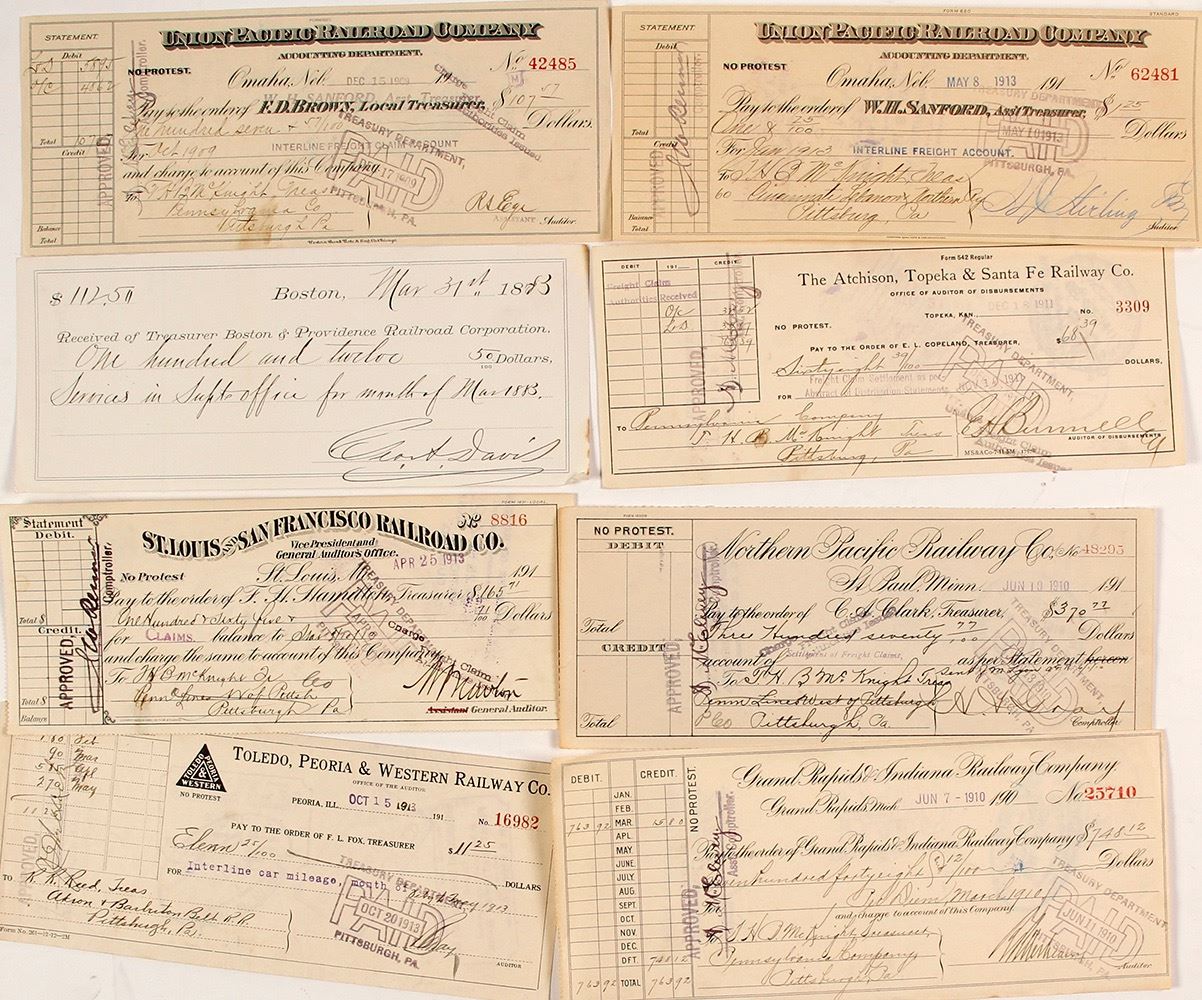 STATEMENT.
Debit
UNION PACIFIC RAILROAD COMPANY
ACCOUNTING DEPARTMENT.
NO PROTEST.
No 42485
Omaha, Neb. DEC 15 1909
Pay to the order of F.D. BROWN, Local Treasurer, $107 57
One hundred seven & 57/100 Dollars.
INTERLINE FREIGHT CLAIM ACCOUNT
For Oct 1909
and charge to account of this Company.
To J H B McKnight Treas
Pennsylvania Co
Pittsburgh Pa
ASSISTANT Auditor.
APPROVED,
Comptroller.
TREASURY DEPARTMENT,
PAID
PITTSBURGH, PA.
Total
Credit
Balance
Total
FORM 620
STANDARD
STATEMENT
Debit
UNION PACIFIC RAILROAD COMPANY
ACCOUNTING DEPARTMENT.
NO PROTEST.
No 62481
Omaha, Neb. MAY 8 1913 191
Pay to the order of W.H. SANFORD, Ass't Treasurer, $1 25
One & 25/100 Dollars
For Jan 1913 INTERLINE FREIGHT ACCOUNT.
To J H B McKnight Treas
Cincinnati Lebanon & Northern Ry
Pittsburg, Pa
Auditor
TREASURY DEPARTMENT
PAID
MAY 10 1913
PITTSBURGH, PA.
APPROVED
Total
Credit
Balance
Total
$112.50
Boston, Mar 31st. 1883
Received of Treasurer Boston & Providence Railroad Corporation,
One hundred and twelve 50/100 Dollars,
Services in Supts office for month of Mar 1883.
Geo. A. Davis
Form 542 Regular
DEBIT 191 CREDIT
The Atchison, Topeka & Santa Fe Railway Co.
OFFICE OF AUDITOR OF DISBURSEMENTS
TOPEKA, KAN., DEC 18 1911 No. 3309
NO PROTEST.
PAY TO THE ORDER OF E. L. COPELAND, TREASURER, $68 39
Sixtyeight 39/100 DOLLARS,
Freight Claim Settlement as per
FOR Abstract of Distribution Statements
TO Pennsylvania Company
J H B McKnight Treas
Pittsburg, Pa
AUDITOR OF DISBURSEMENTS
Freight Claim
Authorities Received
APPROVED,
TREASURY DEPARTMENT,
PAID
Statement
Debit.
ST. LOUIS AND SAN FRANCISCO RAILROAD CO.
No 8816
Vice President and
General Auditor's Office.
APR 25 1913
No Protest
St. Louis, Mo. 191
Pay to the order of F. H. Hamilton, Treasurer $165 71
One Hundred & Sixty five & 71/100 Dollars
for CLAIMS. balance to
and charge the same to account of this Company
To J H B McKnight Tr
Penn Lines W of Pittsb
Pittsburgh Pa
Assistant General Auditor.
APPROVED,
Comptroller.
TREASURY DEPARTMENT
PAID
Total $
Credit.
Total $
Balance
NO PROTEST.
DEBIT
Northern Pacific Railway Co. No 48295
St. Paul, Minn. JUN 10 1910 191
Pay to the order of C. A. Clark, Treasurer, $370 77
Three Hundred seventy 77/100 Dollars
account of Settlement of Freight Claims, as per Statement hereon
To J H B McKnight Treas
Penn Lines West of Pittsburgh
Pittsburgh, Pa.
Comptroller
APPROVED,
TREASURY DEPARTMENT,
PAID
PITTSBURGH, PA.
Total
CREDIT
Total
TOLEDO PEORIA WESTERN
TOLEDO, PEORIA & WESTERN RAILWAY CO.
OFFICE OF THE AUDITOR
NO PROTEST
PEORIA, ILL. OCT 15 1913 191 No. 16982
PAY TO THE ORDER OF F. L. FOX, TREASURER $11 25
Eleven 25/100 DOLLARS
FOR Interline car mileage, month of
TO R. R. Reed, Treas
Akron & Barberton Belt R.R.
Pittsburgh, Pa.
TREASURY DEPARTMENT
PAID
OCT 20 1913
PITTSBURGH, PA.
AUDITOR
APPROVED
Form No. 261-12-12-2M
DEBIT. CREDIT.
JAN.
FEB.
763 92 MAR. 15 80
APL.
MAY.
JUNE.
JULY.
AUG.
SEPT.
OCT.
NOV.
DEC.
DFT. 748 12
763 92 TOTAL 763 92
NO PROTEST.
Grand Rapids & Indiana Railway Company
Grand Rapids, Mich. JUN 7 - 1910 190 No 25710
Pay to the order of Grand Rapids & Indiana Railway Company $748 12
Seven hundred fortyeight & 12/100 Dollars
For Per Diem, March 1910
and charge to account of this Company.
To J H B McKnight, Treasurer,
Pennsylvania Company
Pittsburgh, Pa
Auditor
APPROVED,
Ass't Comptroller.
TREASURY DEPARTMENT,
PAID
JUN 11 1910
PITTSBURGH, PA.